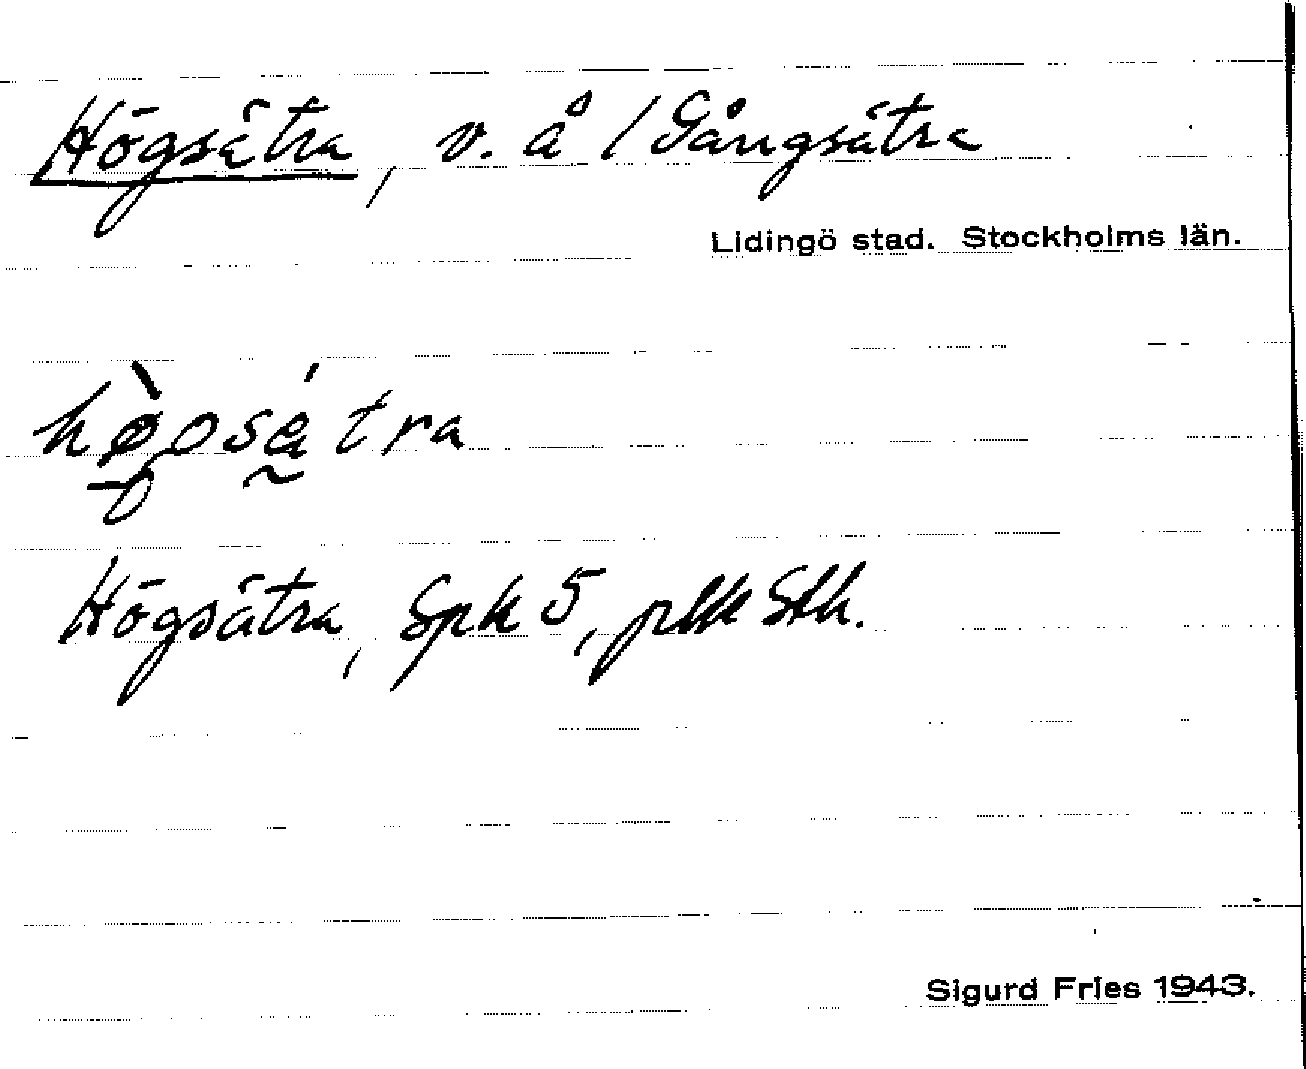 Högsätra, v. å / Gångsätra
Lidingö stad. Stockholms län.
Högsätra, Spk 5, plk Sth.
Sigurd Fries 1943.